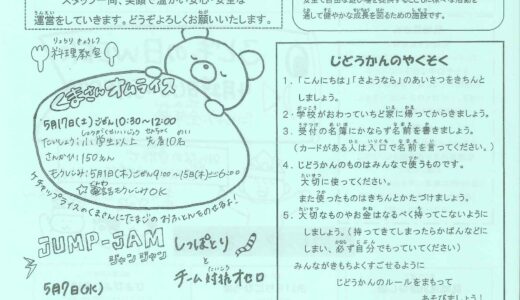 スタッフ一同、笑顔で温かい安心・安全な
運営をしていきます。どうぞよろしくお願いいたします。
りょうり きょうしつ
料理教室
くまさんオムライス
5月17日(土)ごぜん10:30~12:00
たいしょう:小学生以上 先着10名
さんかひ:150えん
もうしこみ:5月1日(木)ごぜん9:00~15日(木)ごご6:00
☆電話もうしこみOK
ケチャップライスのくまさんにたまごのおふとんをのせるよ!
JUMP-JAM
ジャンジャン
しっぽとり
と
チーム対抗オセロ
5月7日(水)
通して健やかな成長を図るための施設です。
じどうかんのやくそく
1、「こんにちは」「さようなら」のあいさつをきちんと
しましょう。
2・学校がおわっていちど家に帰ってからきましょう。
3、受付の名簿にかならず名前を書きましょう。
(カードがある人は入口で名前を言ってください。)
4、じどうかんのものはみんなで使うものです。
大切に使ってください。
また使ったものはきちんとかたづけましょう。
5、大切なものやお金はなるべく持ってこないように
しましょう。(持ってきてしまったらかばんなどに
しまい、必ず自分でもっていてください)
みんながきもちよくすごせるように
じどうかんのルールをまもって
あそびましょう!